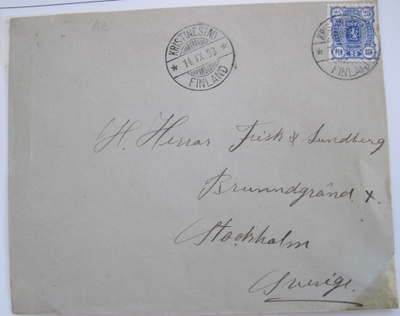 KRISTINESTAD
14.IX.93
FINLAND
25 25
PEN PEN
FINLAND
H. Herrar Frisk & Sundberg
Brunndgränd x.
Stockholm
Sverige.